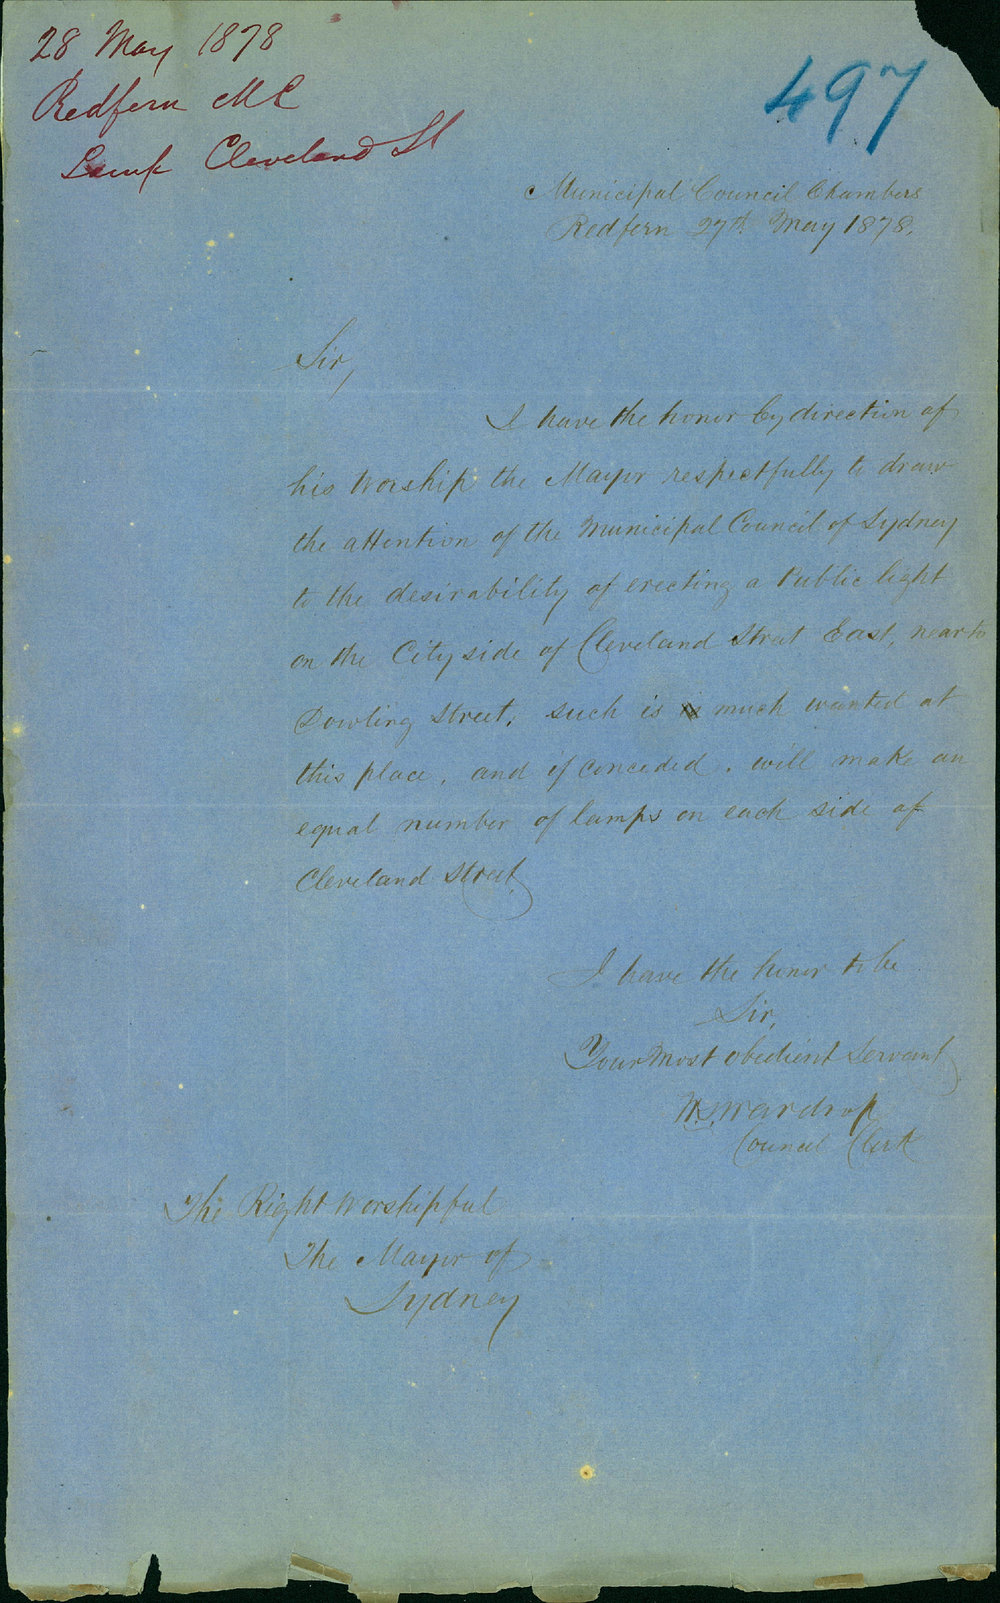 28 May 1878
Redfern MC
Lamp Cleveland St
497
Municipal Council Chambers
Redfern 27th May 1878.
Sir,
I have the honor by direction of
his Worship the Mayor respectfully to draw
the attention of the Municipal Council of Sydney
to the desirability of erecting a Public light
on the City side of Cleveland Street East, near to
Dowling Street, such is is much wanted at
this place, and if conceded, will make an
equal number of lamps on each side of
Cleveland Street.
I have the honor to be
Sir,
Your Most obedient Servant
Wardrop
Council Clerk
The Right Worshipful
The Mayor of
Sydney